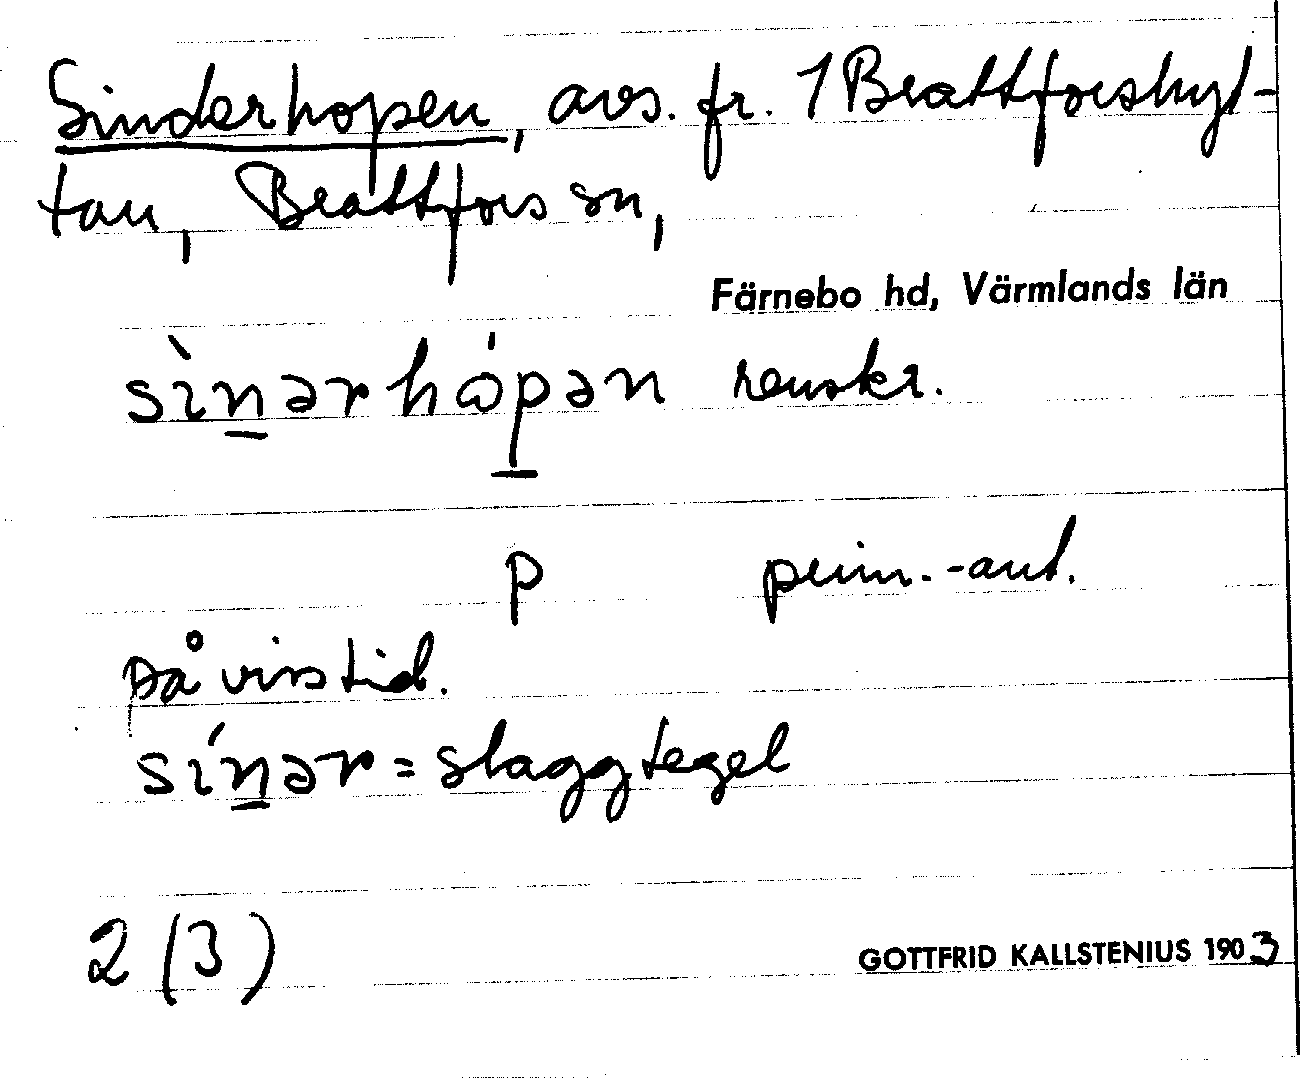 Sinderhopen, avs. fr. 1 Brattforshyt-
tan, Brattfors sn,
Färnebo hd, Värmlands län
sìn̲ərhópən renskr.
p prim.-ant.
på viss tid.
sín̲ər = slaggtegel
2 (3)
GOTTFRID KALLSTENIUS 1903